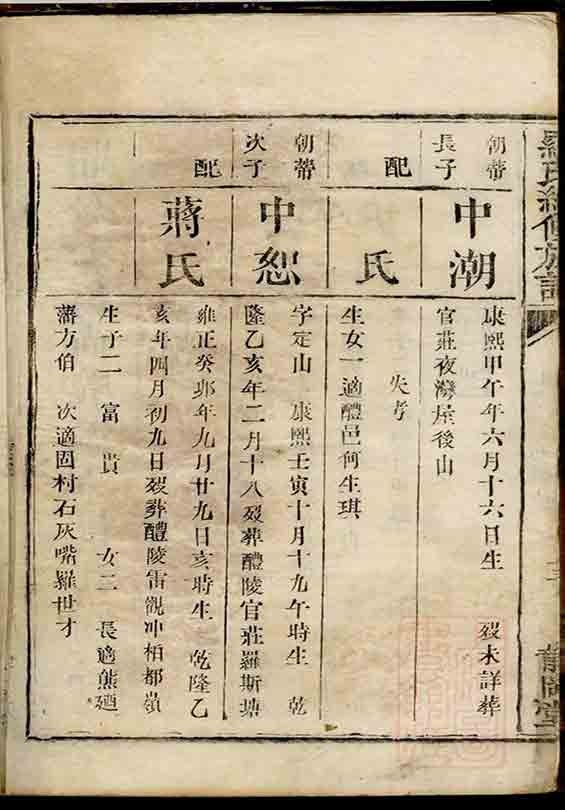 羅氏續修族譜
朝蒂
長子
中潮
康熙甲午年六月十六日生 歿未詳葬
官莊夜灣屋後山
配
氏
失考
生女一適醴邑何生琪
朝蒂
次子
中恕
字定山 康熙壬寅十月十九午時生 乾
隆乙亥年二月十八歿葬醴陵官莊羅斯塘
配
蔣氏
雍正癸卯年九月廿九日亥時生 乾隆乙
亥年四月初九日歿葬醴陵雷觀冲柏都嶺
生子二 富 貴 女二 長適熊廼
藩方伯 次適固村石灰嘴羅世才